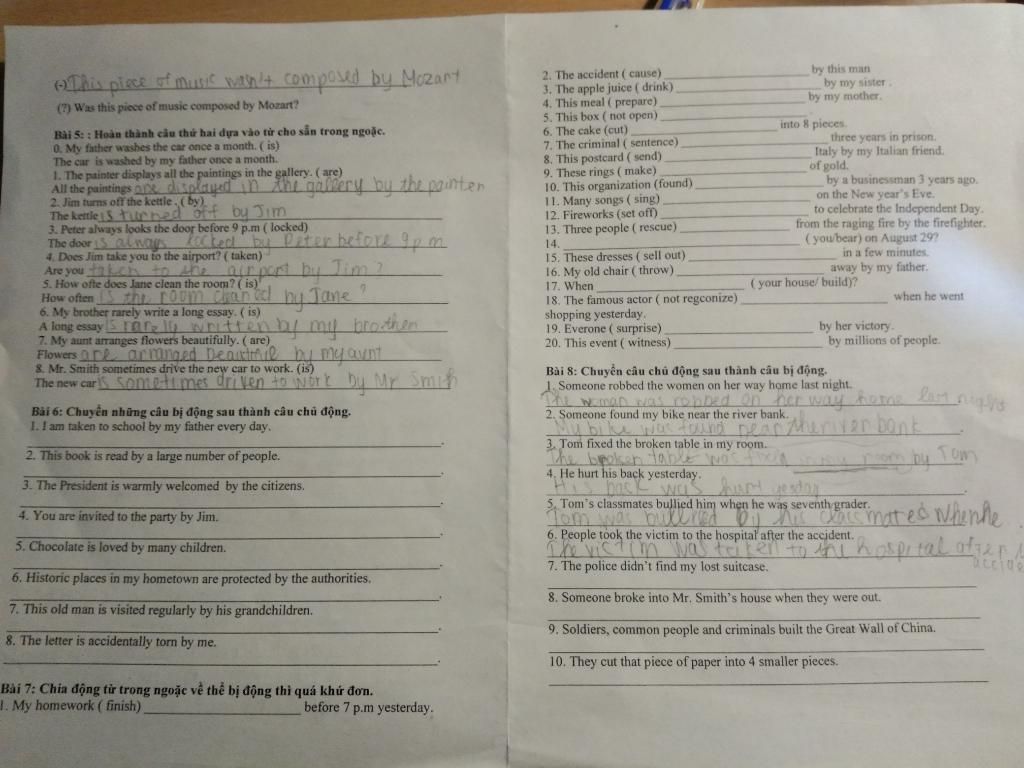 (-) This piece of music wasn't composed by Mozart
(?) Was this piece of music composed by Mozart?
Bài 5: : Hoàn thành câu thứ hai dựa vào từ cho sẵn trong ngoặc.
0. My father washes the car once a month. ( is)
The car is washed by my father once a month.
1. The painter displays all the paintings in the gallery. ( are)
All the paintings are displayed in the gallery by the painter
2. Jim turns off the kettle . ( by)
The kettle is turned off by Jim
3. Peter always looks the door before 9 p.m ( locked)
The door is always locked by Peter before 9 p m
4. Does Jim take you to the airport? ( taken)
Are you taken to the airport by Jim ?
5. How ofte does Jane clean the room? ( is)
How often is the room cleaned by Jane ?
6. My brother rarely write a long essay. ( is)
A long essay is rarely written by my brother
7. My aunt arranges flowers beautifully. ( are)
Flowers are arranged by my aunt
8. Mr. Smith sometimes drive the new car to work. (is)
The new car is sometimes driven to work by Mr Smith
Bài 6: Chuyển những câu bị động sau thành câu chủ động.
1. I am taken to school by my father every day.
2. This book is read by a large number of people.
3. The President is warmly welcomed by the citizens.
4. You are invited to the party by Jim.
5. Chocolate is loved by many children.
6. Historic places in my hometown are protected by the authorities.
7. This old man is visited regularly by his grandchildren.
8. The letter is accidentally torn by me.
Bài 7: Chia động từ trong ngoặc về thể bị động thì quá khứ đơn.
1. My homework ( finish) ____ before 7 p.m yesterday.
2. The accident ( cause) ____ by this man
3. The apple juice ( drink) ____ by my sister .
4. This meal ( prepare) ____ by my mother.
5. This box ( not open) ____ .
6. The cake (cut) ____ into 8 pieces.
7. The criminal ( sentence) ____ three years in prison.
8. This postcard ( send) ____ Italy by my Italian friend.
9. These rings ( make) ____ of gold.
10. This organization (found) ____ by a businessman 3 years ago.
11. Many songs ( sing) ____ on the New year's Eve.
12. Fireworks (set off) ____ to celebrate the Independent Day.
13. Three people ( rescue) ____ from the raging fire by the firefighter.
14. ____ ( you/bear) on August 29?
15. These dresses ( sell out) ____ in a few minutes.
16. My old chair ( throw) ____ away by my father.
17. When ____ ( your house/ build)?
18. The famous actor ( not regconize) ____ when he went
shopping yesterday.
19. Everone ( surprise) ____ by her victory.
20. This event ( witness) ____ by millions of people.
Bài 8: Chuyển câu chủ động sau thành câu bị động.
1. Someone robbed the women on her way home last night.
The woman was robbed on her way home last night
2. Someone found my bike near the river bank.
My bike was found near the river bank
3. Tom fixed the broken table in my room.
The broken table was fixed in my room by Tom
4. He hurt his back yesterday.
His back was hurt
5. Tom's classmates bullied him when he was seventh grader.
Tom was bullied by his classmates when he
6. People took the victim to the hospital after the accident.
The victim was taken to the hospital after
7. The police didn't find my lost suitcase.
8. Someone broke into Mr. Smith's house when they were out.
9. Soldiers, common people and criminals built the Great Wall of China.
10. They cut that piece of paper into 4 smaller pieces.